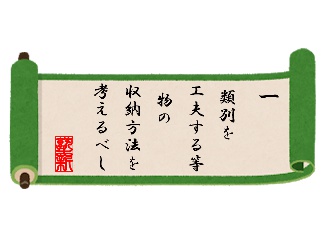 一
類別を
工夫する等
物の
収納方法を
考えるべし